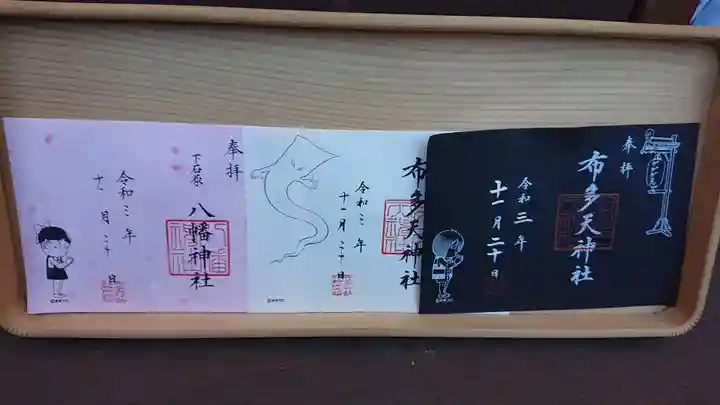 奉拝
下石原
八幡神社
令和三年
十一月二十日
布多天神社
令和三年
十一月二十日
奉拝
布多天神社
令和三年
十一月二十日